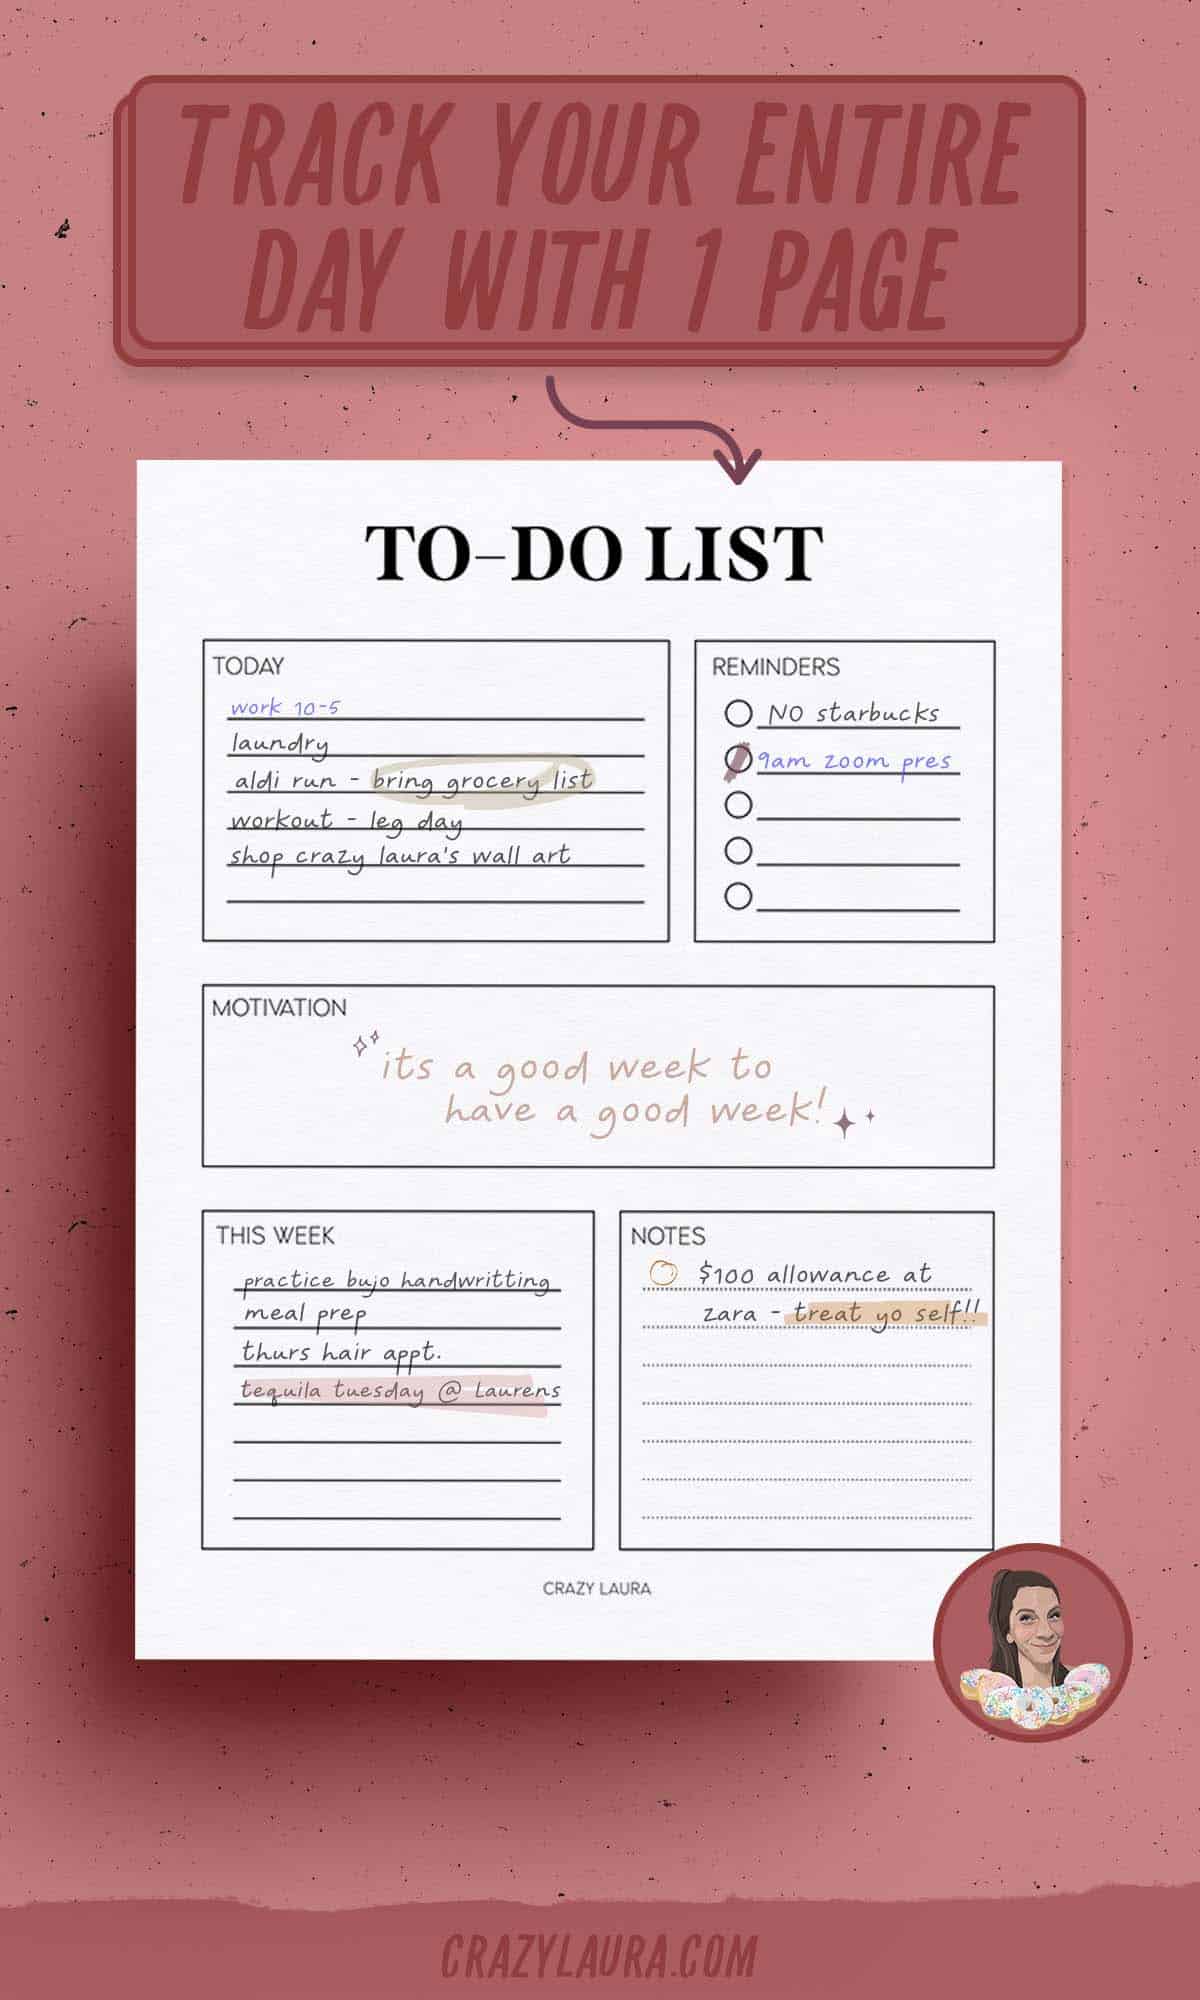 TRACK YOUR ENTIRE
DAY WITH 1 PAGE
TO-DO LIST
TODAY
work 10-5
laundry
aldi run - bring grocery list
workout - leg day
shop crazy laura's wall art
REMINDERS
NO starbucks
9am zoom pres
MOTIVATION
its a good week to
have a good week!
THIS WEEK
practice bujo handwritting
meal prep
thurs hair appt.
tequila tuesday @ Laurens
NOTES
$100 allowance at
zara - treat yo self!!
CRAZY LAURA
CRAZYLAURA.COM